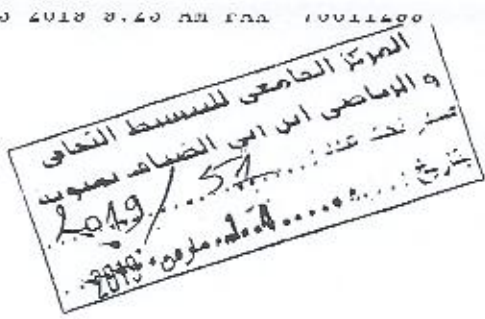 2019 9:25 AM FAX 70011288
المركز الجامعي للتنشيط الثقافي
و الرياضي ابن ابي الضياف بمنوبة
صدر تحت عدد: 51 / 2019
بتاريخ: مارس 2019